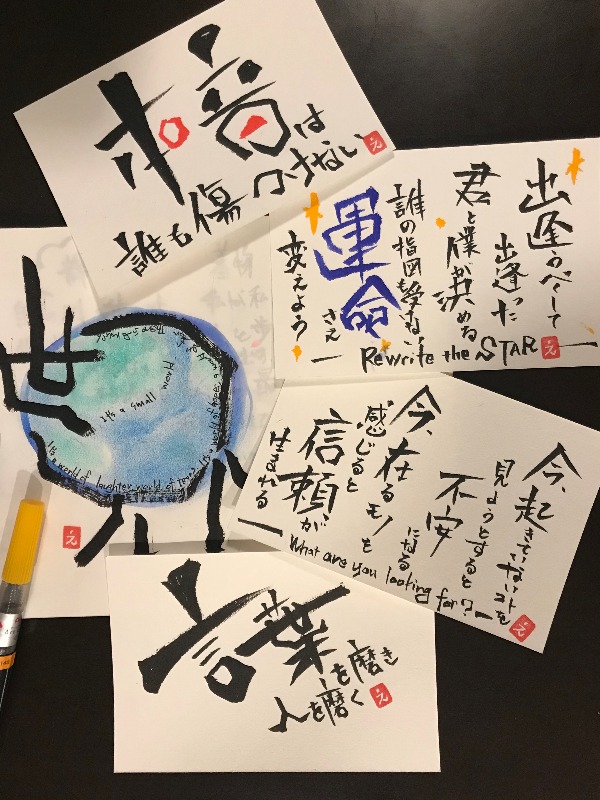 本音は
誰も傷つけない
え
出逢うべくして
出逢った
君と僕が決める
誰の指図も受けない
運命さえ
変えよう
Rewrite the STAR
え
世界
It's a small
World
It's a world of laughter world of tears
え
今、起きていないコトを
見ようとすると
不安になる
今、在るモノを
感じると
信頼が
生まれる
What are you looking for?
え
言葉を磨き
人を磨く
え